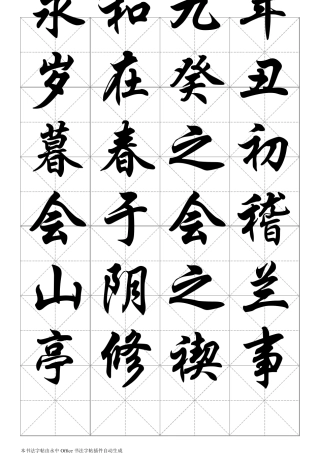 永和九年
岁在癸丑
暮春之初
会于会稽
山阴之兰
亭修禊事
本书法字帖由永中Office书法字帖插件自动生成